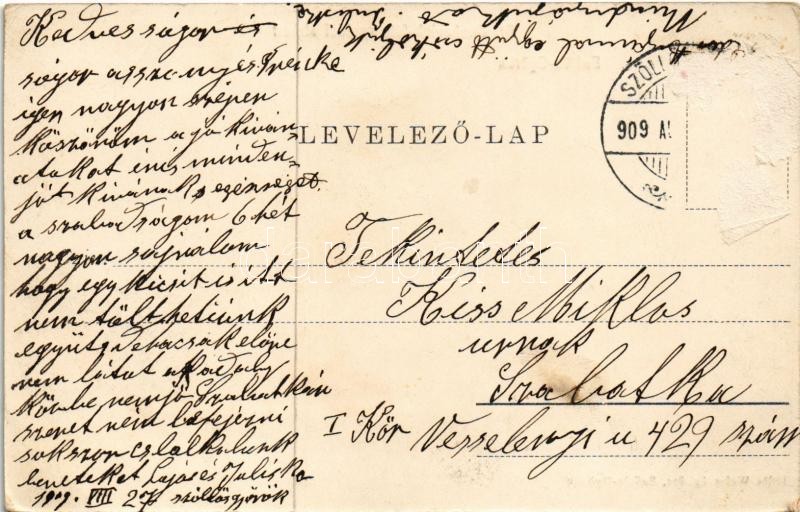 Kedves sógor és
sógor asszony és Tréncke
igen nagyon szépen
köszönöm a jó kiván-
atokat én is minden-
jót kivánok s egésséget.
a szabadságom 6 hét
nagyon sajnálom
hogy egy kicsit is itt
nem tölthetiünk
együtt de ha csak előre
nem látot akadaly
közbe nem jő Szabatkán
szeret ném befejezni
sokszor csCsókolunk
beneteket lajos és Juliska
1909. VIII 27 szöllősgyörök
Mindnyájukat Juliska
együtt csókoljuk
LEVELEZŐ-LAP
SZÖLL
909 AU
Tekintetes
Kiss Miklos
urnak
Szabatka
I Kör Vesselenyi u 429 szám